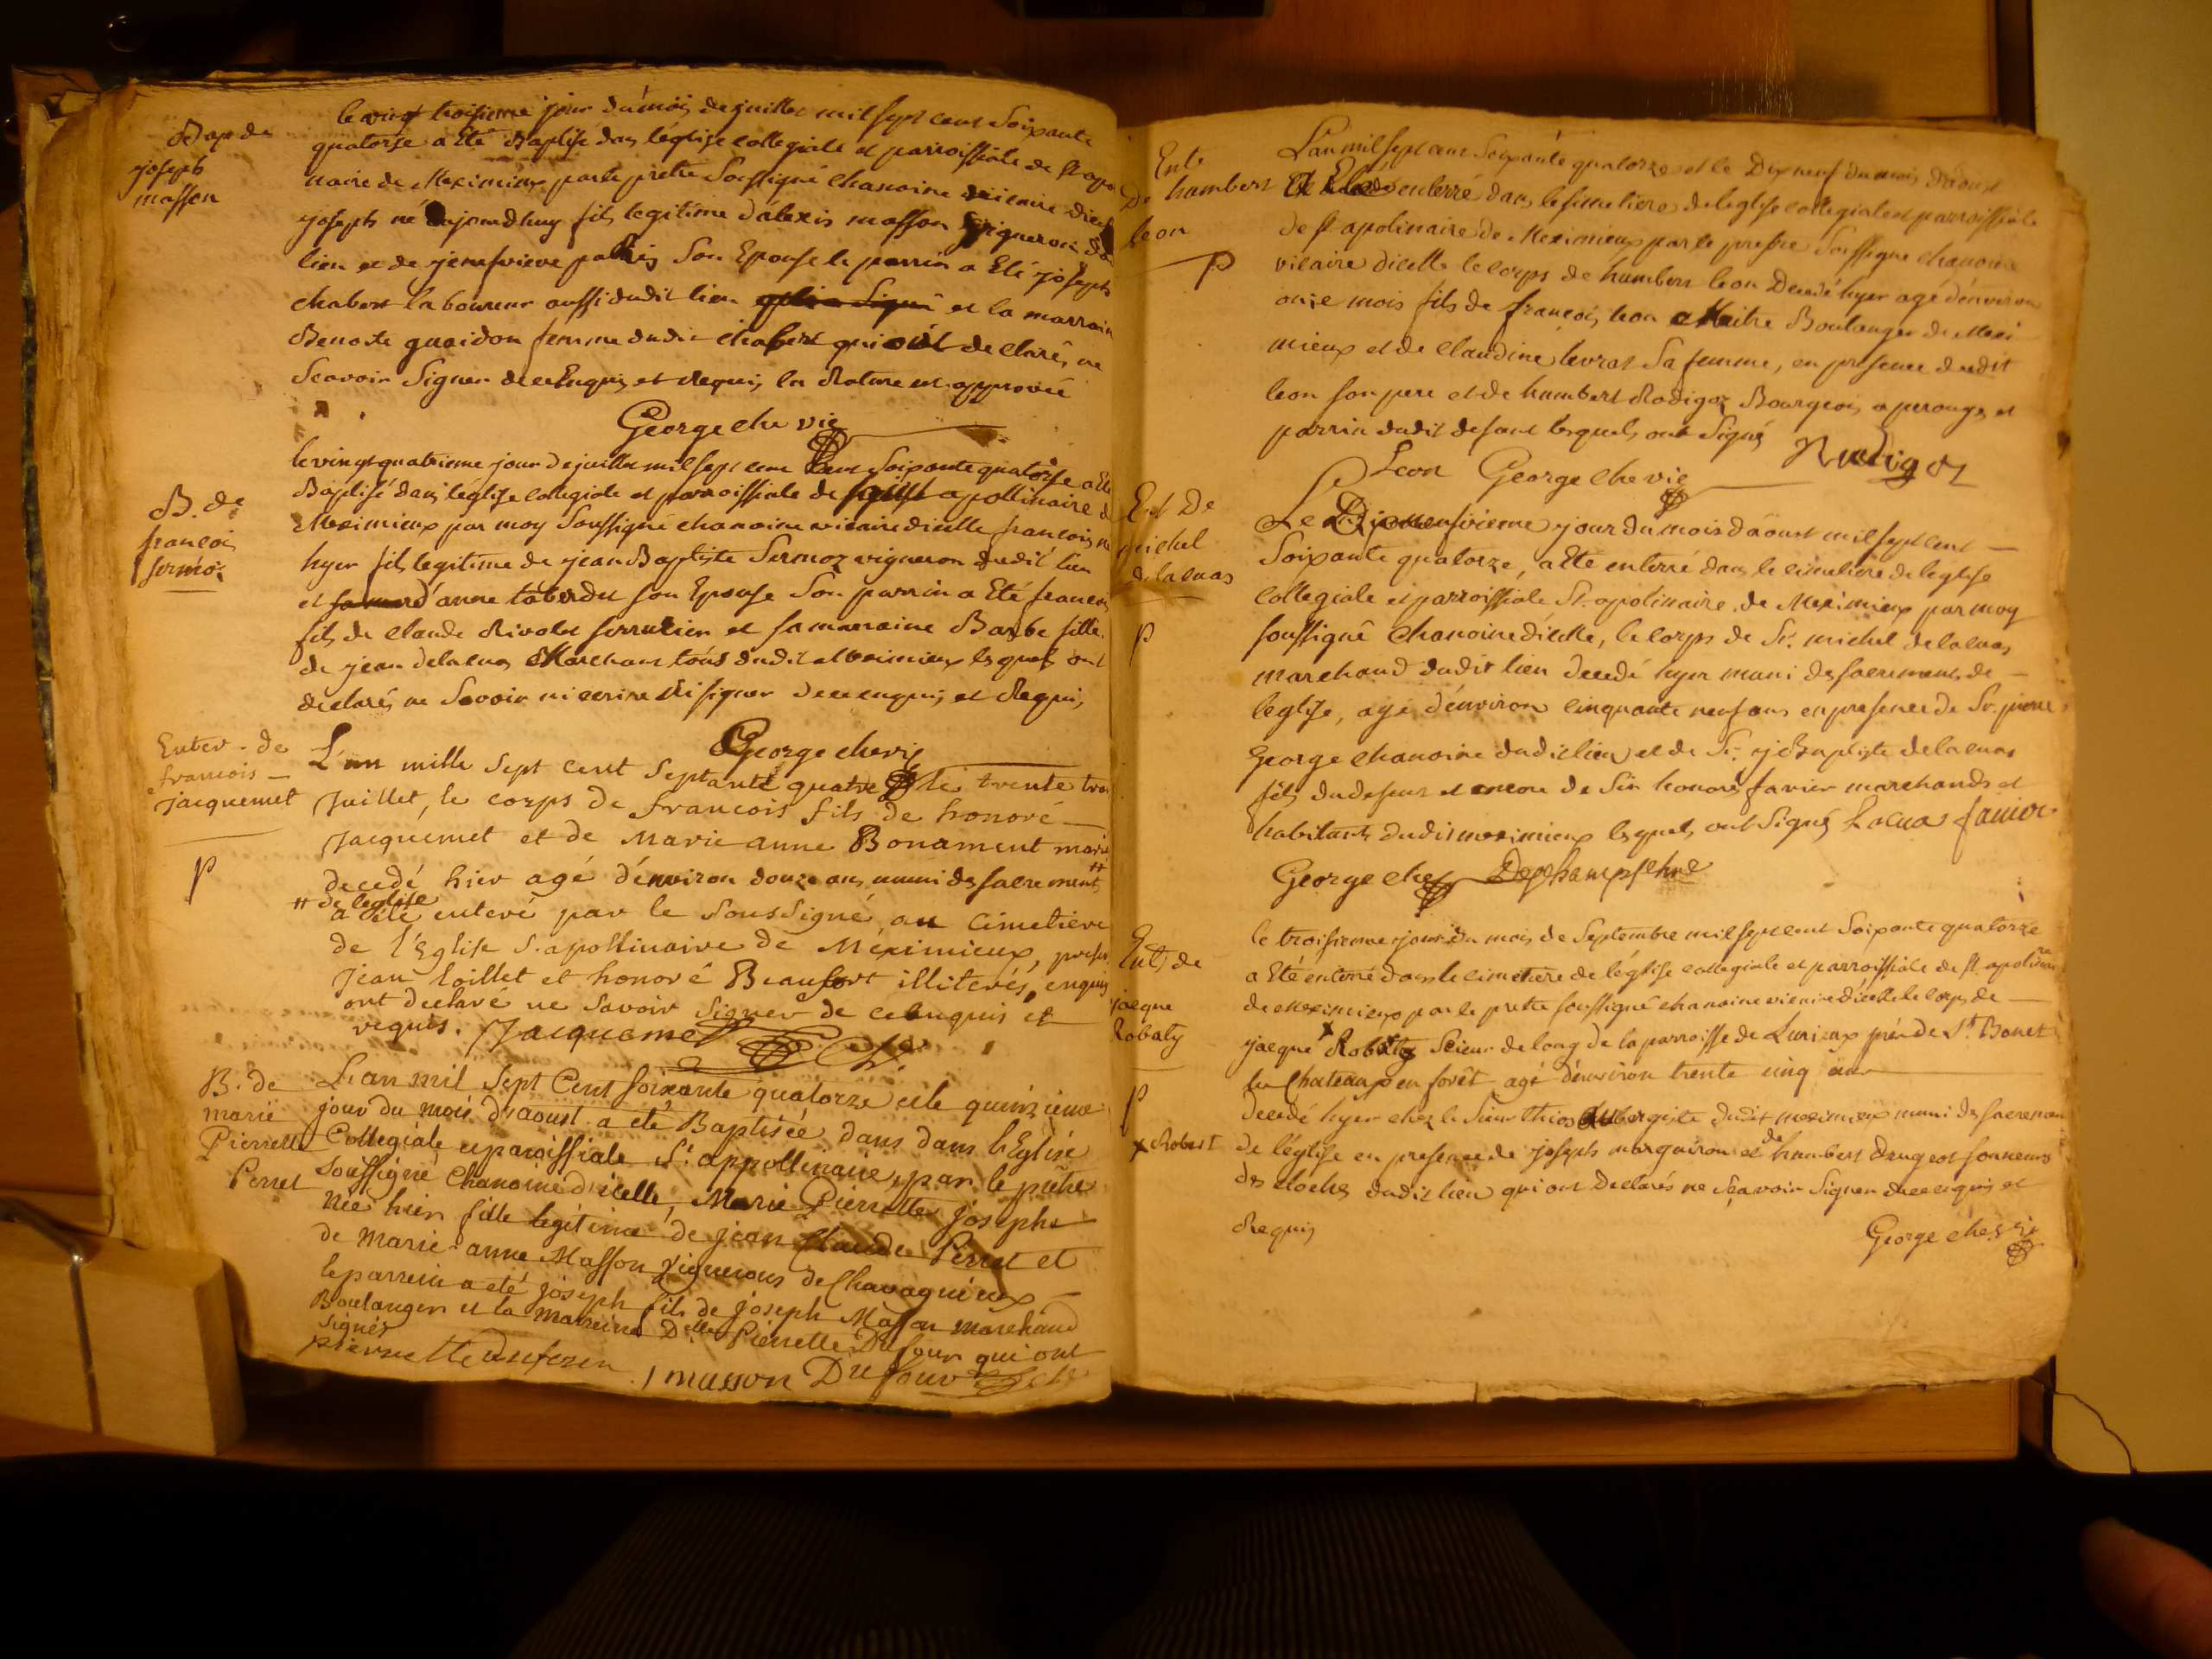 Bap de
joseph
masson
le vingt troisieme jour du mois de juillet mil sept cent Soixante
quatorse a Eté Baptisé dans leglise collegiale et parroissiale de st apo
naire de Meximieux par le pretre Soussigné chanoine vicaire dicelle
joseph né aujourdhuy fils legitime d'alexis masson vigneron du
lieu et de jenevieve Son Epouse le parrin a Eté joseph
chabert laboureur aussi dudit lieu qui a Signé et la marraine
Benoite guaidon femme dudit chabert qui ont declarés ne
Scavoir Signer de ce Enquis et Requis la Rature est approuvée
George che vic
B. de
francois
sermoz
le vingt quatrieme jour de juillet mil sept cent Soixante quatorse a Eté
Baptisé dans léglise collegiale et parroissiale de saint apollinaire de
Meximieux par moy Soussigné chanoine vicaire dicelle francois né
hyer fils legitime de jean Baptiste Sermoz vigneron dudit lieu
et d'anne tabardet son Epouse Son parrin a Eté francois
fils de claude Rivolet serrurier et sa marraine Barbe fille
de jean delacuas Marchant tous dudit Meximieux lesquels ont
declarés ne Scavoir ni ecrire ni signer de ce enquis et Requis
George che vic
Enter. de
francois
Jacquemet
p
L'an mille sept cent septante quatre et le trente trois
Juillet, le corps de francois fils de honoré
Jacquemet et de Marie anne Bonament mariés
decedé hier agé d'environ douze ans muni des sacrements #
# de l'eglise
a été enteré par le soussigné au cimetiere
de l'Eglise S. apollinaire de Méximieux, presens
Jean loillet et honoré Beaufort illiterés, enquis
ont declaré ne savoir signer de ce enquis et
requis. Jacquemet
B. de
marie
Pierrette
Perret
L'an mil sept Cent soixante quatorze et le quinzieme
jour du mois d'aoust a eté Baptisée dans dans l'Eglise
Collegiale et paroissiale St appollinaire, par le prêtre
soussigné Chanoine d'icelle, Marie Pierrette josephe
née hier fille legitime de jean Claude Perret et
de Marie-anne Masson Vignerons de Chavagnieux
le parrein a eté joseph fils de joseph Masson marchand
Boulanger et la Marreine Delle Pierrette Dufour qui ont
signés
pierrette dufour j masson Dufour
Ent.
De humbert
leon
p
L'an mil sept cent Soixante quatorze et le Dix neuf du mois d'aoust
a Eté enterré dans le simetiere de leglise collegiale et parroissiale
de st apolinaire de Meximieux par le prestre Soussigné chanoine
vicaire dicelle le corps de humbert leon Decedé hyer agé d'environ
onze mois fils de francois leon Maitre Boulanger de Mexi
mieux et de claudine levrat Sa femme, en presence dudit
leon son pere et de humbert Rodigoz Bourgeois a perouge et
parrin dudit defunt lesquels ont Signés
Leon George che vic Rudigoz
Ent De
michel
delacuas
p
Le Dixneuvieme jour du mois d'aoust mil sept cent
Soixante quatorze, a Eté enterré dans le cimetiere de leglise
collegiale et parroissiale St. apolinaire de Meximieux par moy
soussigné chanoine dicelle, le corps de Sr. michel delacuas
marchand dudit lieu decedé hyer muni des sacrements de
leglise, agé d'environ cinquante neuf ans en presence de Sr. pierre
George chanoine dudit lieu et de Sr. j Baptiste delacuas
fils du defunt et encore de Sir honoré favier marchands et
habitants dudit meximieux lesquels ont Signés Lacuas favier
George che Deschamps chne
Ent. de
jacque
Robaty
p
x Robert
le troisieme jour du mois de Septembre mil sept cent Soixante quatorze
a Eté enterré dans le cimetiere de léglise collegiale et parroissiale de st apolinaire
de Meximieux par le prêtre soussigné chanoine vicaire dicelle le corps de
jacque x Robaty Scieur de long de la parroisse de Luriaux prés de St Bonet
le Chateaux en forêt agé d'environ trente cinq ans
decedé hyer chez le Sieur thios aubergiste dudit meximieux muni des sacremens
de léglise en presence de joseph marguiron et de humbert Daugeot sonneurs
des cloches dudit lieu qui ont declarés ne sçavoir Signer de ce enquis et
Requis
George che vic